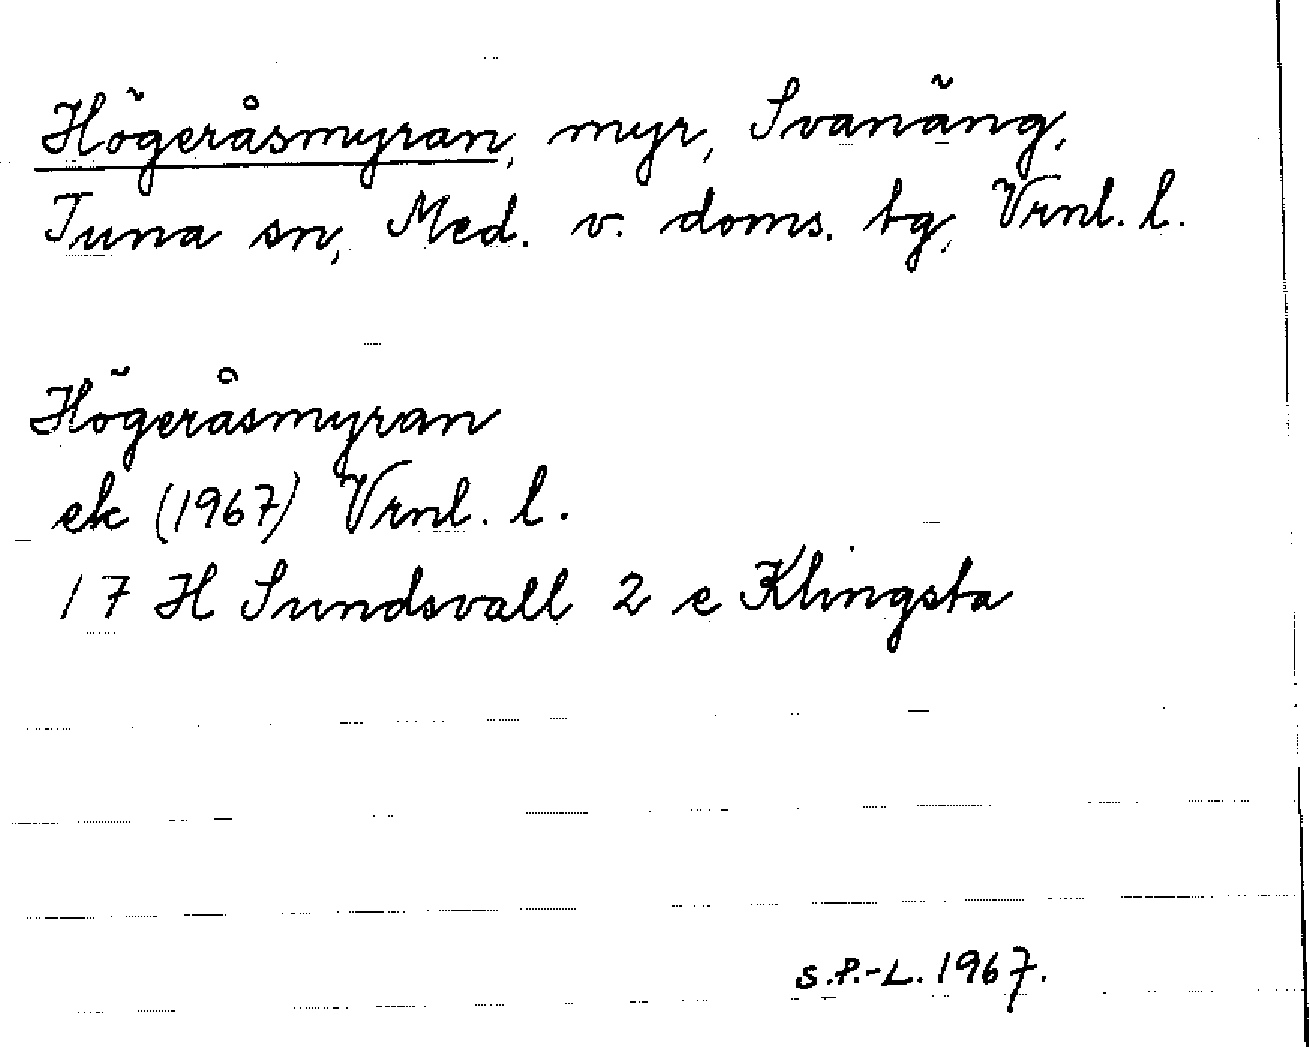 Högeråsmyran, myr, Svanäng,
Tuna sn, Med. v. doms. tg, Vrnl. l.
Högeråsmyran
ek (1967) Vrnl. l.
17 H Sundsvall 2 e Klingsta
S.P.-L. 1967.